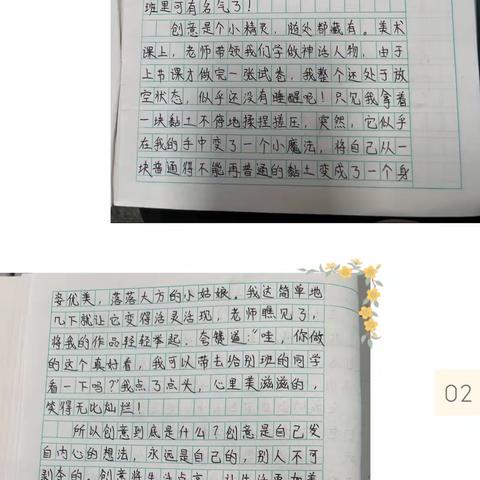 班里可有名气了!
创意是个小精灵,随处都藏有。美术
课上,老师带领我们学做神话人物,由于
上节课才做完一张试卷,我整个还处于放
空状态,似乎还没有睡醒呢!只见我拿着
一块黏土不停地揉捏搓压,突然,它似乎
在我的手中变了一个小魔法,将自己从一
块普通得不能再普通的黏土变成了一个身
姿优美,落落大方的小姑娘。我这简单地
几下就让它变得活灵活现,老师瞧见了,
将我的作品轻轻举起,夸赞道:“哇,你做
的这个真好看,我可以带去给别班的同学
看一下吗?”我点了点头,心里美滋滋的,
笑得无比灿烂!
所以创意到底是什么?创意是自己发
自内心的想法,永远是自己的,别人不可
剥夺的。创意将生活点亮,让生活更加美
02